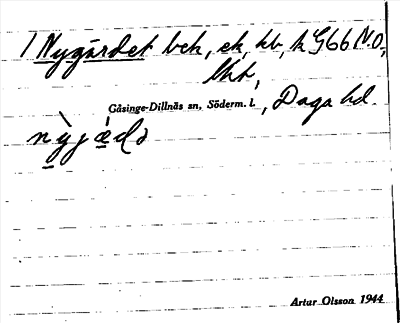 1 Nygärdet bek, ek, kb, k G66 N.O,
lht,
Gåsinge-Dillnäs sn, Söderm. l., Daga hd.
Artur Olsson 1944